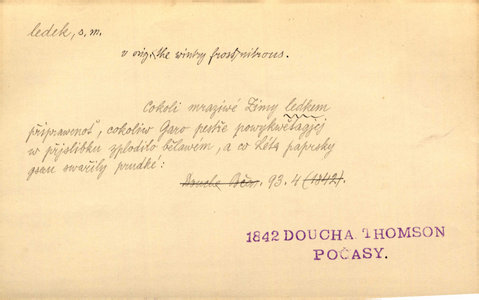 ledek, s, m.
v orig. the wintry frost nitrous.
Cokoli mraziwé Zimy ledkem
připraweno, cokoliw Garo pestře powykwétagjej
w přjslibku zplodilo bělawém, a co Léta paprsky
gsau swařily prudké:
Doucha Poč. 93. 4 (1842).
1842 DOUCHA THOMSON
POČASY.